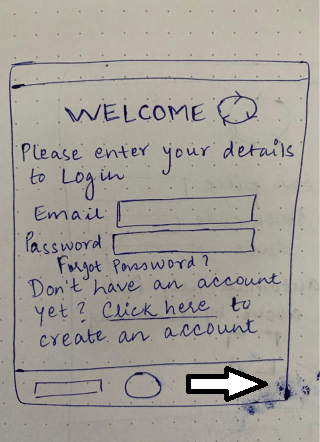 WELCOME
Please enter your details
to Login
Email
Password
Forgot Password?
Don't have an account
yet? Click here to
create an account